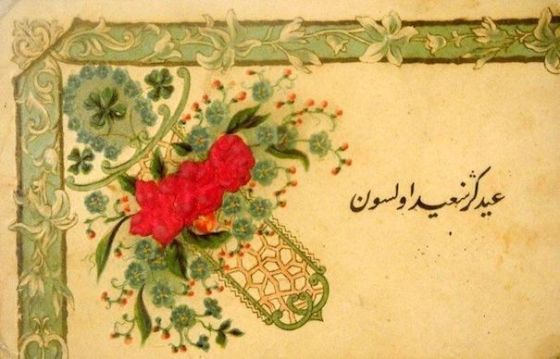 عیدكڭز سعید اولسون